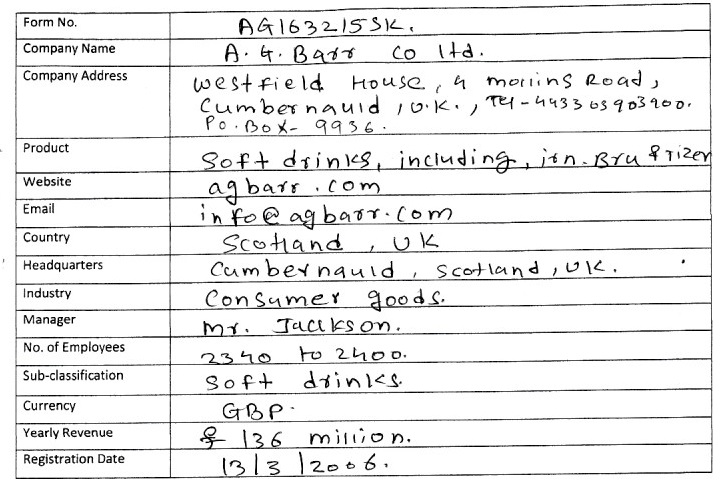 Form No. AG163215SK.
Company Name A. G. Barr co ltd.
Company Address westfield House, 4 mollins Road,
Cumbernauld, U.K., Tel - 443303903900.
Po. Box - 9936.
Product Soft drinks, including, irn. Bru & Tizer
Website agbarr.com
Email info@agbarr.com
Country Scotland, UK
Headquarters Cumbernauld, Scotland, UK.
Industry Consumer goods.
Manager Mr. Jackson.
No. of Employees 2340 to 2400.
Sub-classification Soft drinks.
Currency GBP.
Yearly Revenue £ 136 million.
Registration Date 13/3/2006.